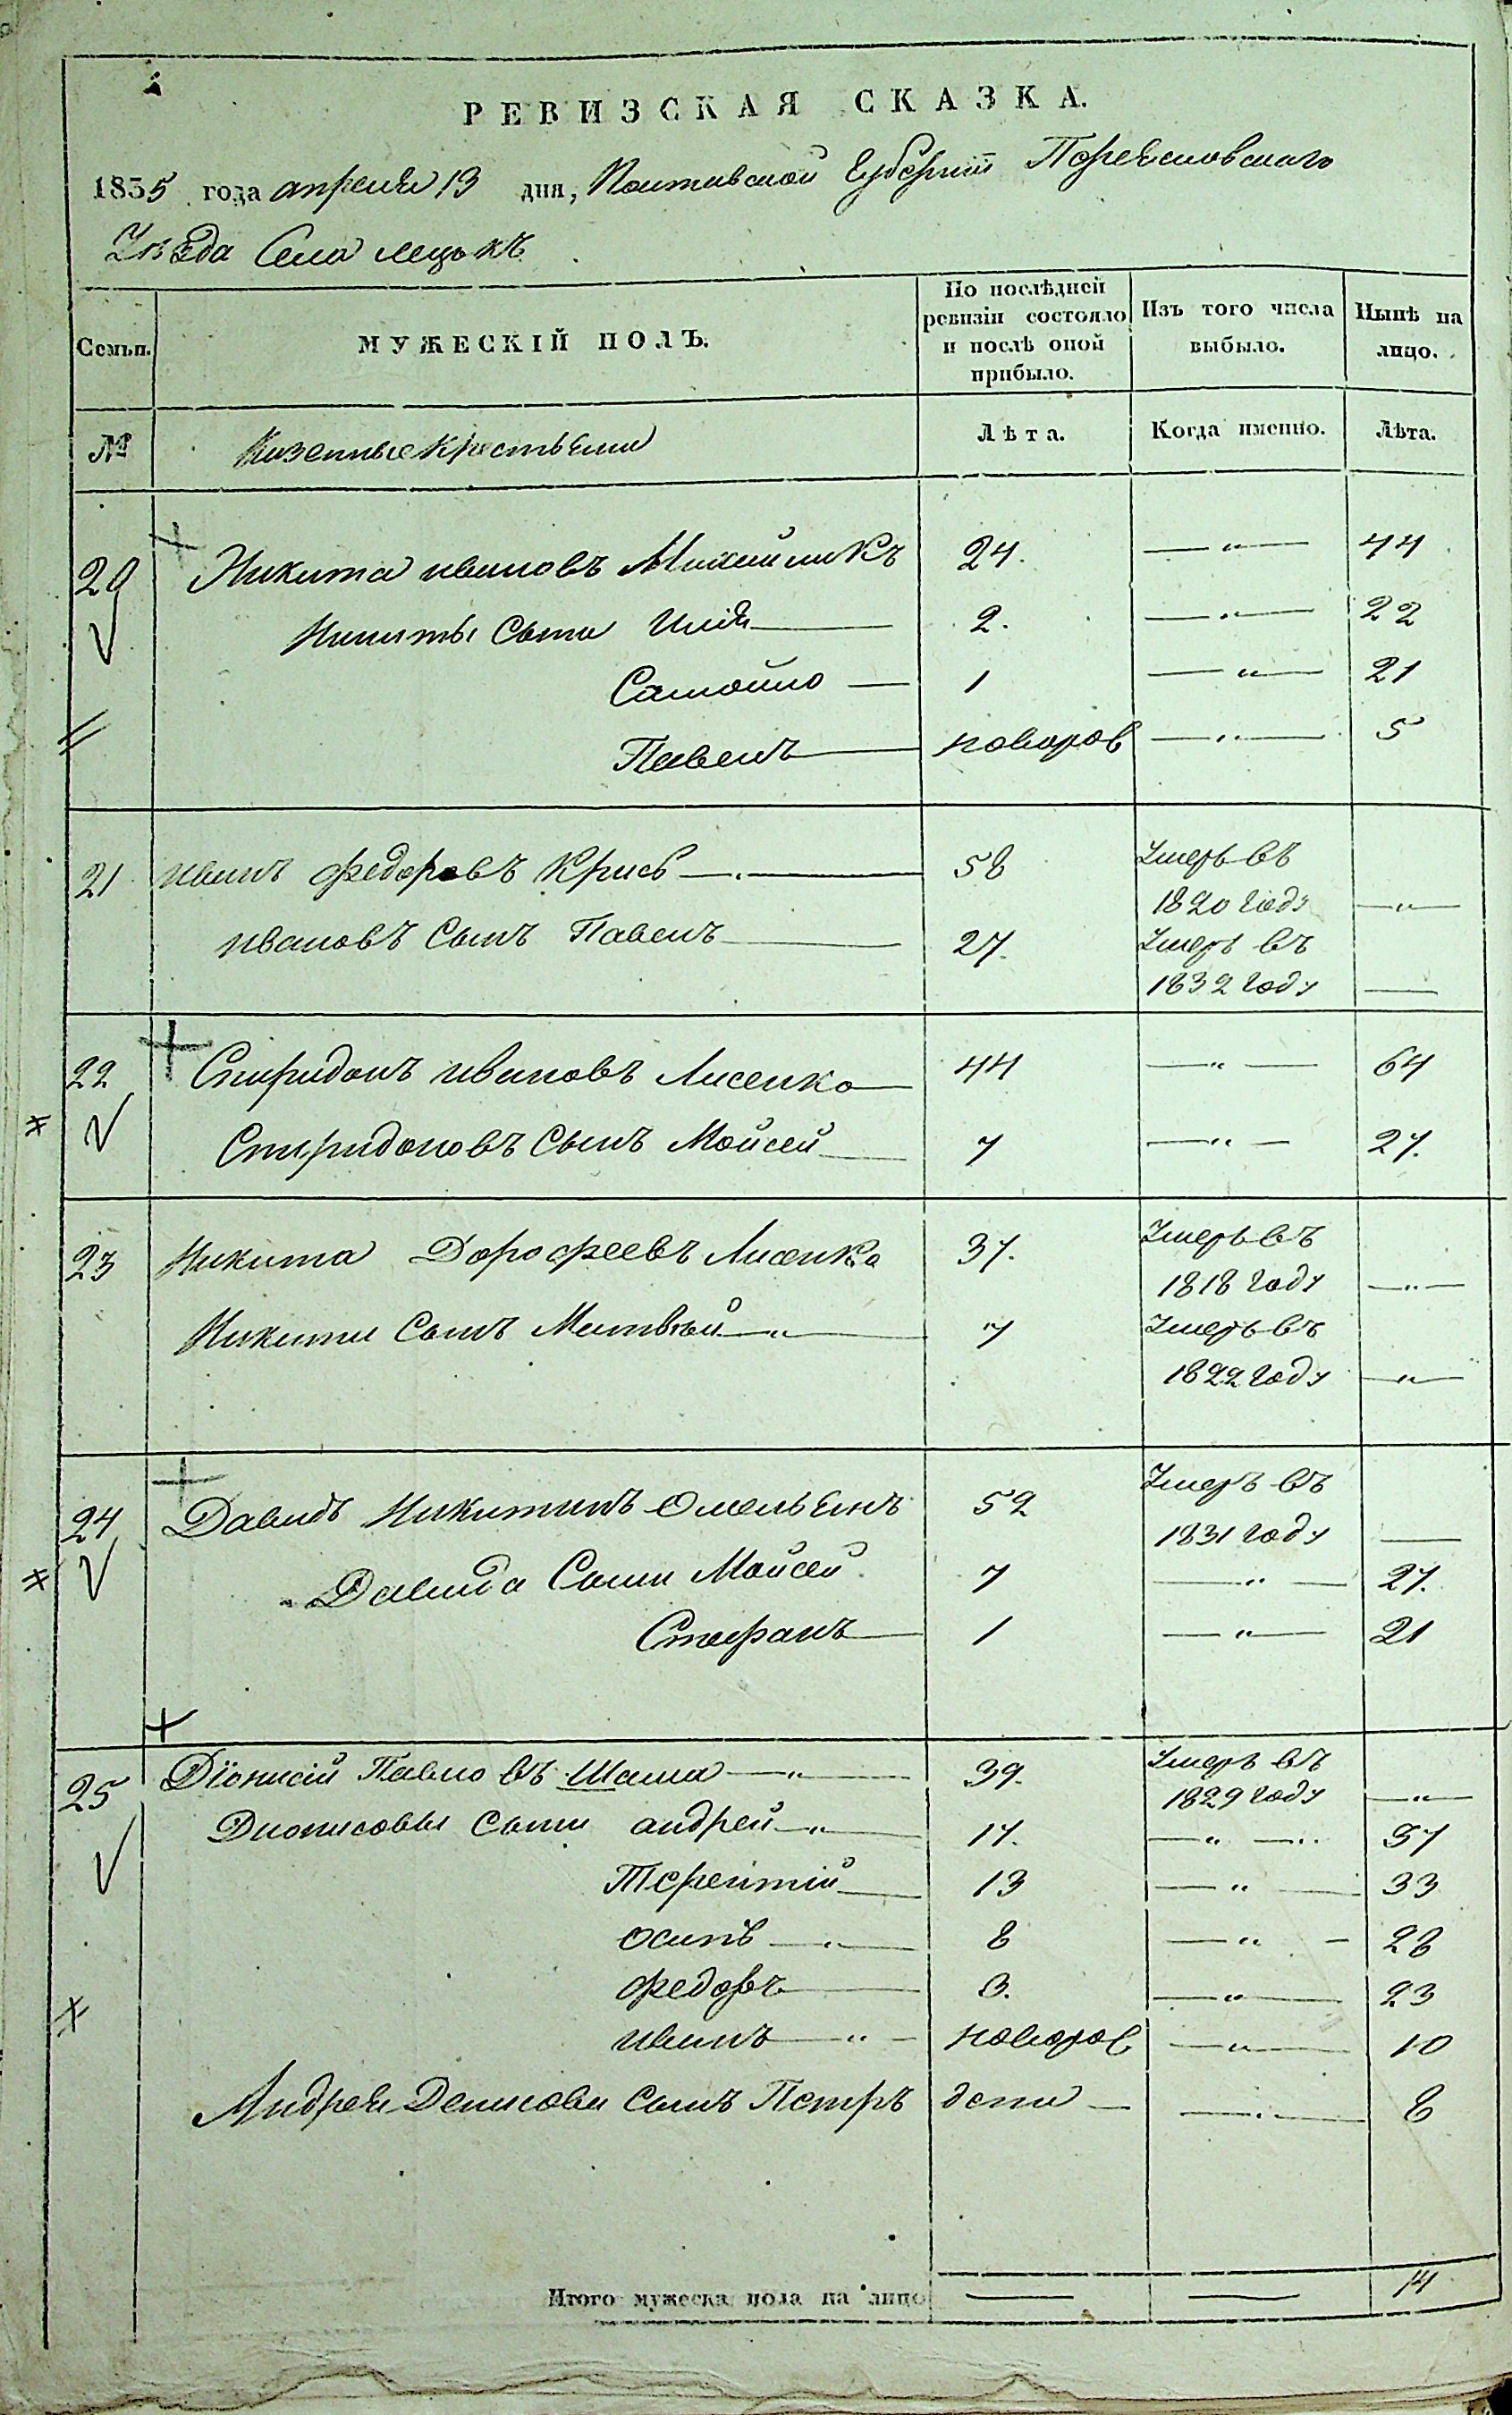 РЕВИЗСКАЯ СКАЗКА.
1835 года апреля 13 дня, Полтавской Губернїи Переясловскаго
Уѣзда Села лецькъ
Семьи. МУЖЕСКІЙ ПОЛЪ. По послѣдней ревизіи состояло и послѣ оной прибыло. Изъ того числа выбыло. Нынѣ на лицо.
№ Казенные крестьяни Лѣта. Когда именно. Лѣта.
20 Никита ивановъ 24. — " — 44
Никиты Сыни Илія — 2. — " — 22
Самойло — 1 — " — 21
Павелъ — новоров — " — 5
21 иванъ федоровъ Крись — 58 Умеръ въ
1820 году — " —
ивановъ Сынъ Павелъ — 27. Умеръ въ
1832 году —
22 Спиридонъ ивановъ Лисенко — 44 — " — 64
Спиридоновъ Сынъ Мойсей — 7 — " — 27.
23 Никита Дорофеевъ Лисенко 37. Умеръ въ
1818 году — " —
Никити Сынъ Матвѣй — " — 7 Умеръ въ
1822 году — " —
24 Давидъ Никитинъ Омельянъ 52 Умеръ въ
1831 году —
Давида Сыни Мойсей 7 — " — 27.
Стефанъ — 1 — " — 21
25 Дїонисій Павловъ Шаша — " — 39. Умеръ въ
1829 году — " —
Дионисовы Сыни андрей — " — 17. — " — 37
Терентїй — 13 — " — 33
осипъ — " — 8 — " — 28
федоръ — 3. — " — 23
иванъ — " — новоров — " — 10
Андрея Денисова Сынъ Петръ — " — 8
Итого мужеска пола на лицо — — 14